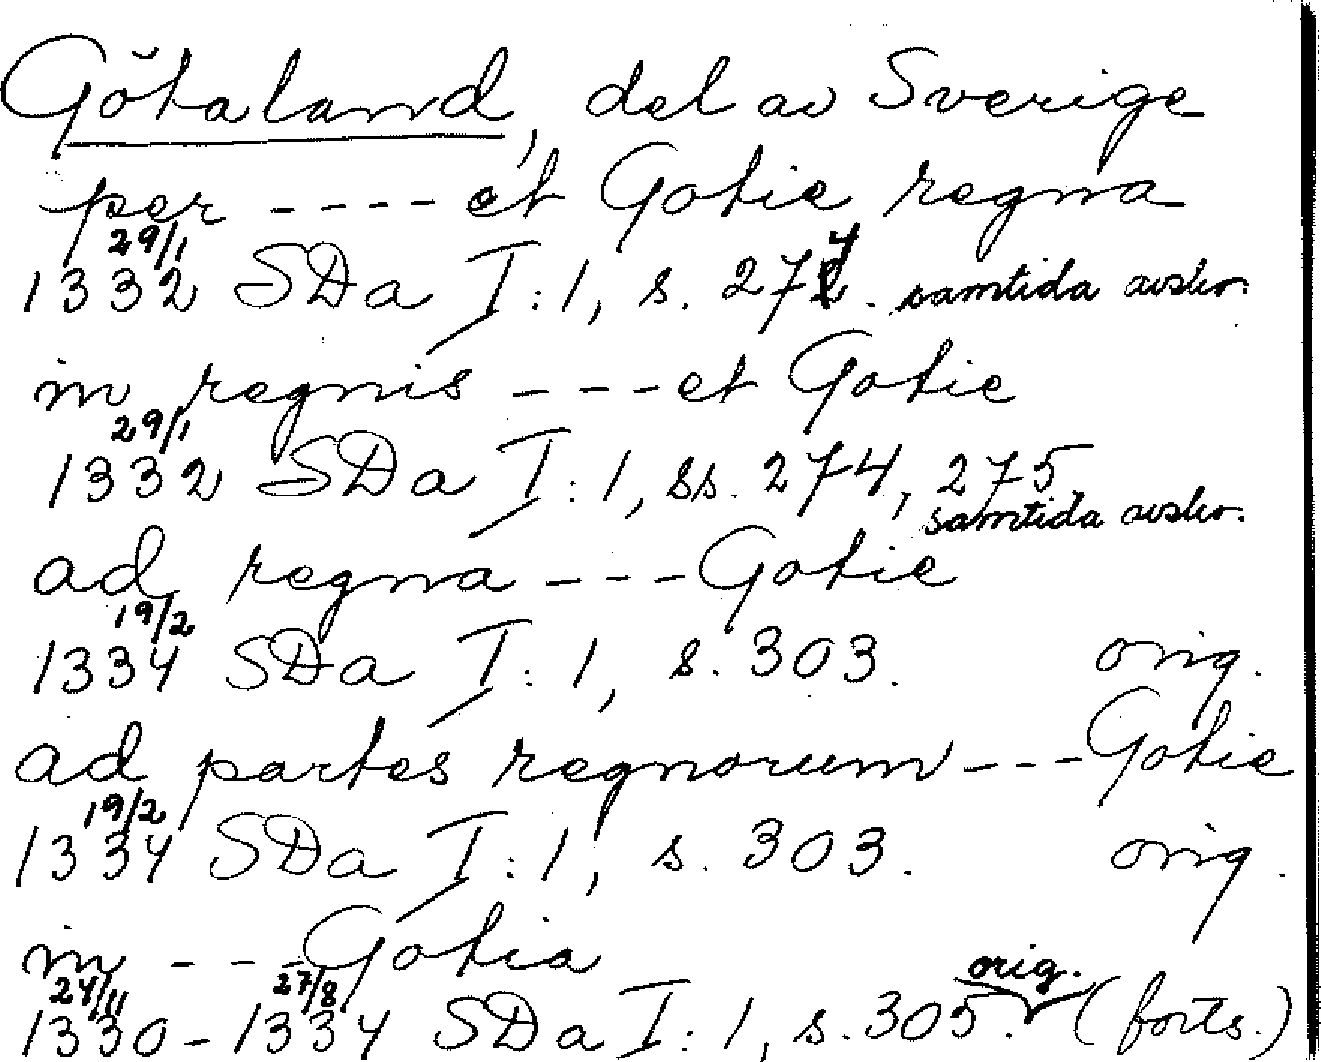 Götaland, del av Sverige
per ---- et Gotie regna
29/1
1332 SDa I:1, s. 274. samtida avskr.
in regnis --- et Gotie
29/1
1332 SDa I:1, ss. 274, 275
samtida avskr.
ad regna --- Gotie
19/2
1334 SDa I:1, s. 303. orig.
ad partes regnorum --- Gotie
19/2
1334 SDa I:1, s. 303. orig.
in --- Gotia
24/11 27/8 orig.
1330-1334 SDa I:1, s. 305. (forts.)